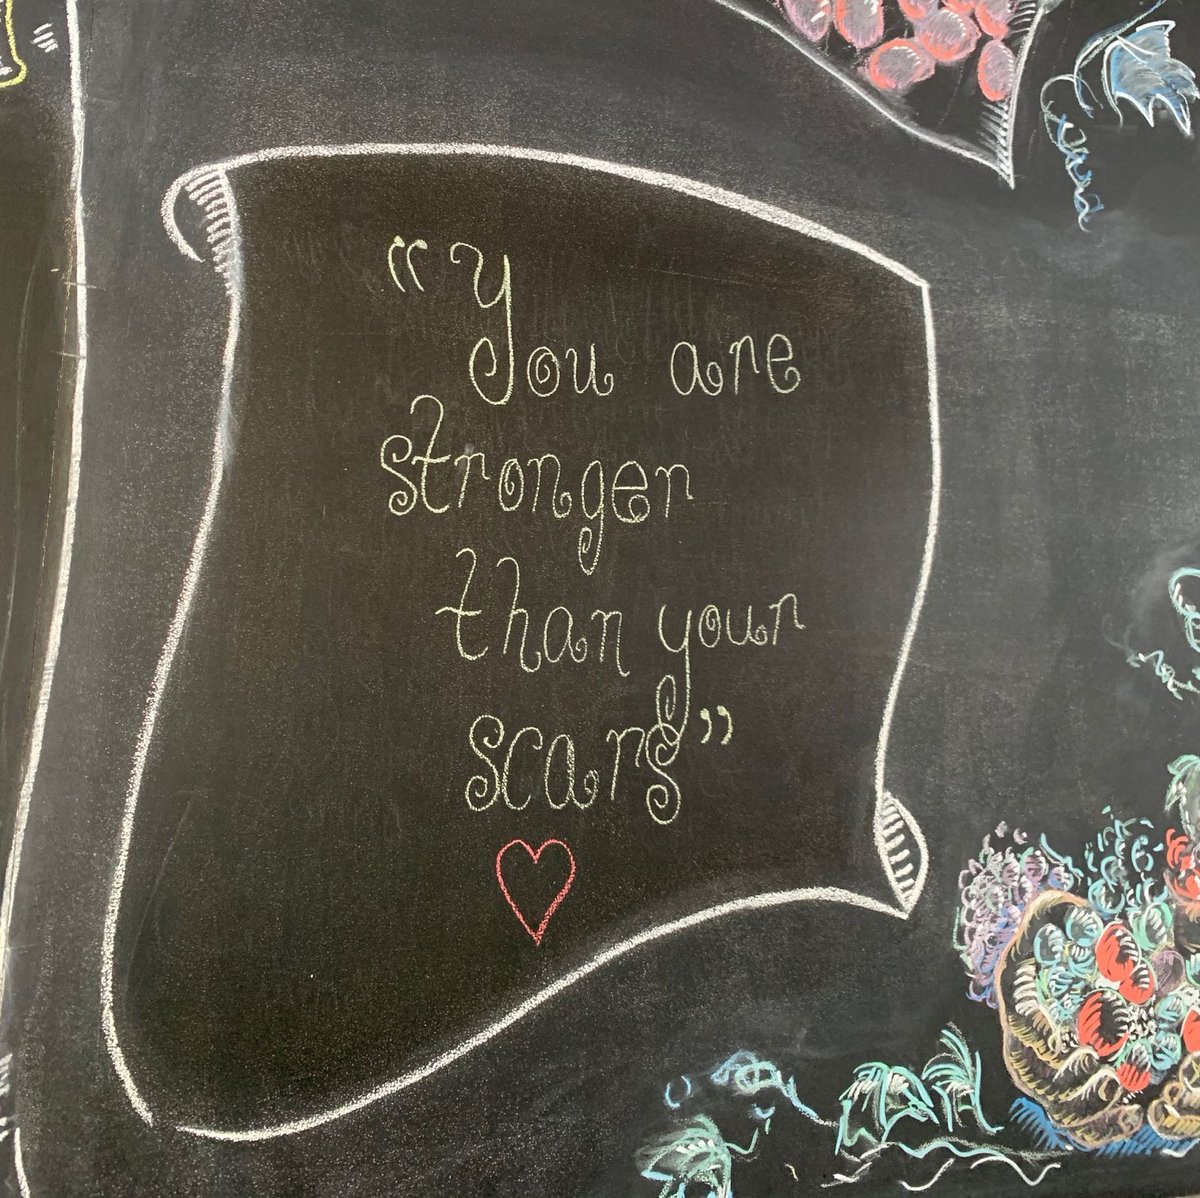 “You are
stronger
than your
scars”